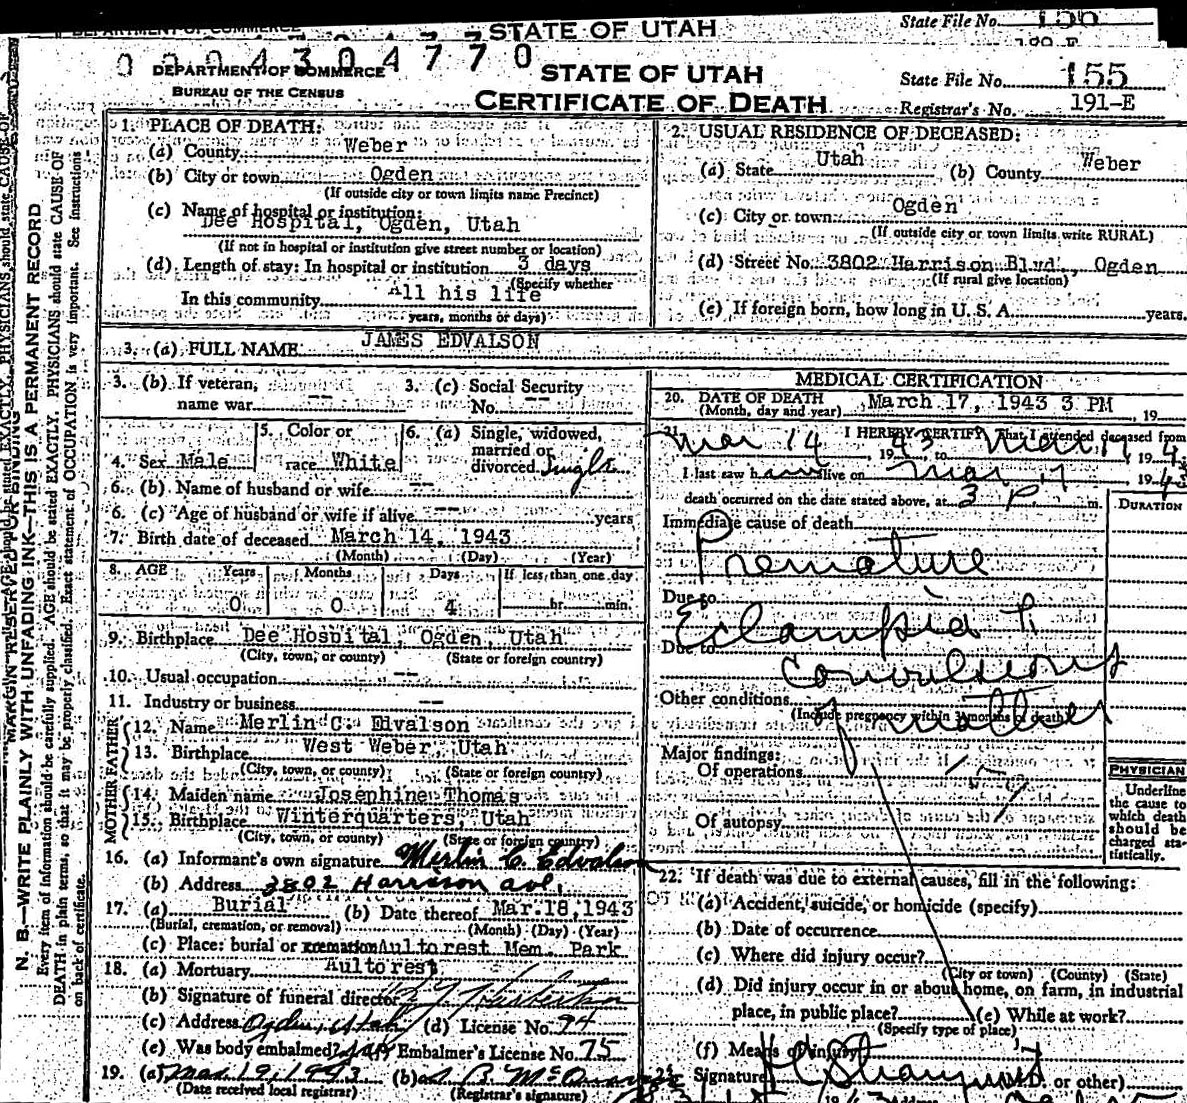 STATE OF UTAH
State File No. 156
0004304770
DEPARTMENT OF COMMERCE
BUREAU OF THE CENSUS
STATE OF UTAH
CERTIFICATE OF DEATH
State File No. 155
Registrar's No. 191-E
N. B.—WRITE PLAINLY WITH UNFADING INK—THIS IS A PERMANENT RECORD
Every item of information should be carefully supplied. AGE should be stated EXACTLY. PHYSICIANS should state CAUSE OF
DEATH in plain terms, so that it may be properly classified. Exact statement of OCCUPATION is very important. See instructions
on back of certificate.
1. PLACE OF DEATH:
(a) County Weber
(b) City or town Ogden
(If outside city or town limits name Precinct)
(c) Name of hospital or institution:
Dee Hospital, Ogden, Utah
(If not in hospital or institution give street number or location)
(d) Length of stay: In hospital or institution 3 days
(Specify whether
In this community All his life
years, months or days)
2. USUAL RESIDENCE OF DECEASED:
(a) State Utah (b) County Weber
(c) City or town Ogden
(If outside city or town limits write RURAL)
(d) Street No. 3802 Harrison Blvd., Ogden
(If rural give location)
(e) If foreign born, how long in U. S. A. years.
3. (a) FULL NAME JAMES EDVALSON
3. (b) If veteran, name war --
3. (c) Social Security No. --
4. Sex Male
5. Color or race White
6. (a) Single, widowed, married or divorced Single
6. (b) Name of husband or wife --
6. (c) Age of husband or wife if alive -- years
7. Birth date of deceased March 14, 1943
(Month) (Day) (Year)
8. AGE Years Months Days If less than one day
0 0 4 hr. min.
9. Birthplace Dee Hospital, Ogden, Utah
(City, town, or county) (State or foreign country)
10. Usual occupation --
11. Industry or business --
FATHER
12. Name Merlin C. Edvalson
13. Birthplace West Weber, Utah
(City, town, or county) (State or foreign country)
MOTHER
14. Maiden name Josephine Thomas
15. Birthplace Winterquarters, Utah
(City, town, or county) (State or foreign country)
16. (a) Informant's own signature Merlin C. Edvalson
(b) Address 3802 Harrison ave.
17. (a) Burial (b) Date thereof Mar. 18, 1943
(Burial, cremation, or removal) (Month) (Day) (Year)
(c) Place: burial or cremation Aultorest Mem. Park
18. (a) Mortuary Aultorest
(b) Signature of funeral director
(c) Address Ogden, Utah (d) License No. 94
(e) Was body embalmed? Embalmer's License No. 75
19. (a) Mar 19, 1943 (b)
(Date received local registrar) (Registrar's signature)
MEDICAL CERTIFICATION
20. DATE OF DEATH
(Month, day and year) March 17, 1943 3 PM, 19
21. I HEREBY CERTIFY That I attended deceased from
Mar 14, 1943, to Mar 17, 194
I last saw h alive on Mar 17, 1943
death occurred on the date stated above, at 3 P m.
DURATION
Immediate cause of death
Premature
Due to
Eclampsia
Due to
Convulsions
Other conditions of mother
(Include pregnancy within 3 months of death)
Major findings:
Of operations
Of autopsy
PHYSICIAN
Underline
the cause to
which death
should be
charged sta-
tistically.
22. If death was due to external causes, fill in the following:
(a) Accident, suicide, or homicide (specify)
(b) Date of occurrence
(c) Where did injury occur?
(City or town) (County) (State)
(d) Did injury occur in or about home, on farm, in industrial
place, in public place? (e) While at work?
(Specify type of place)
(f) Means of injury
23. Signature (M.D. or other)